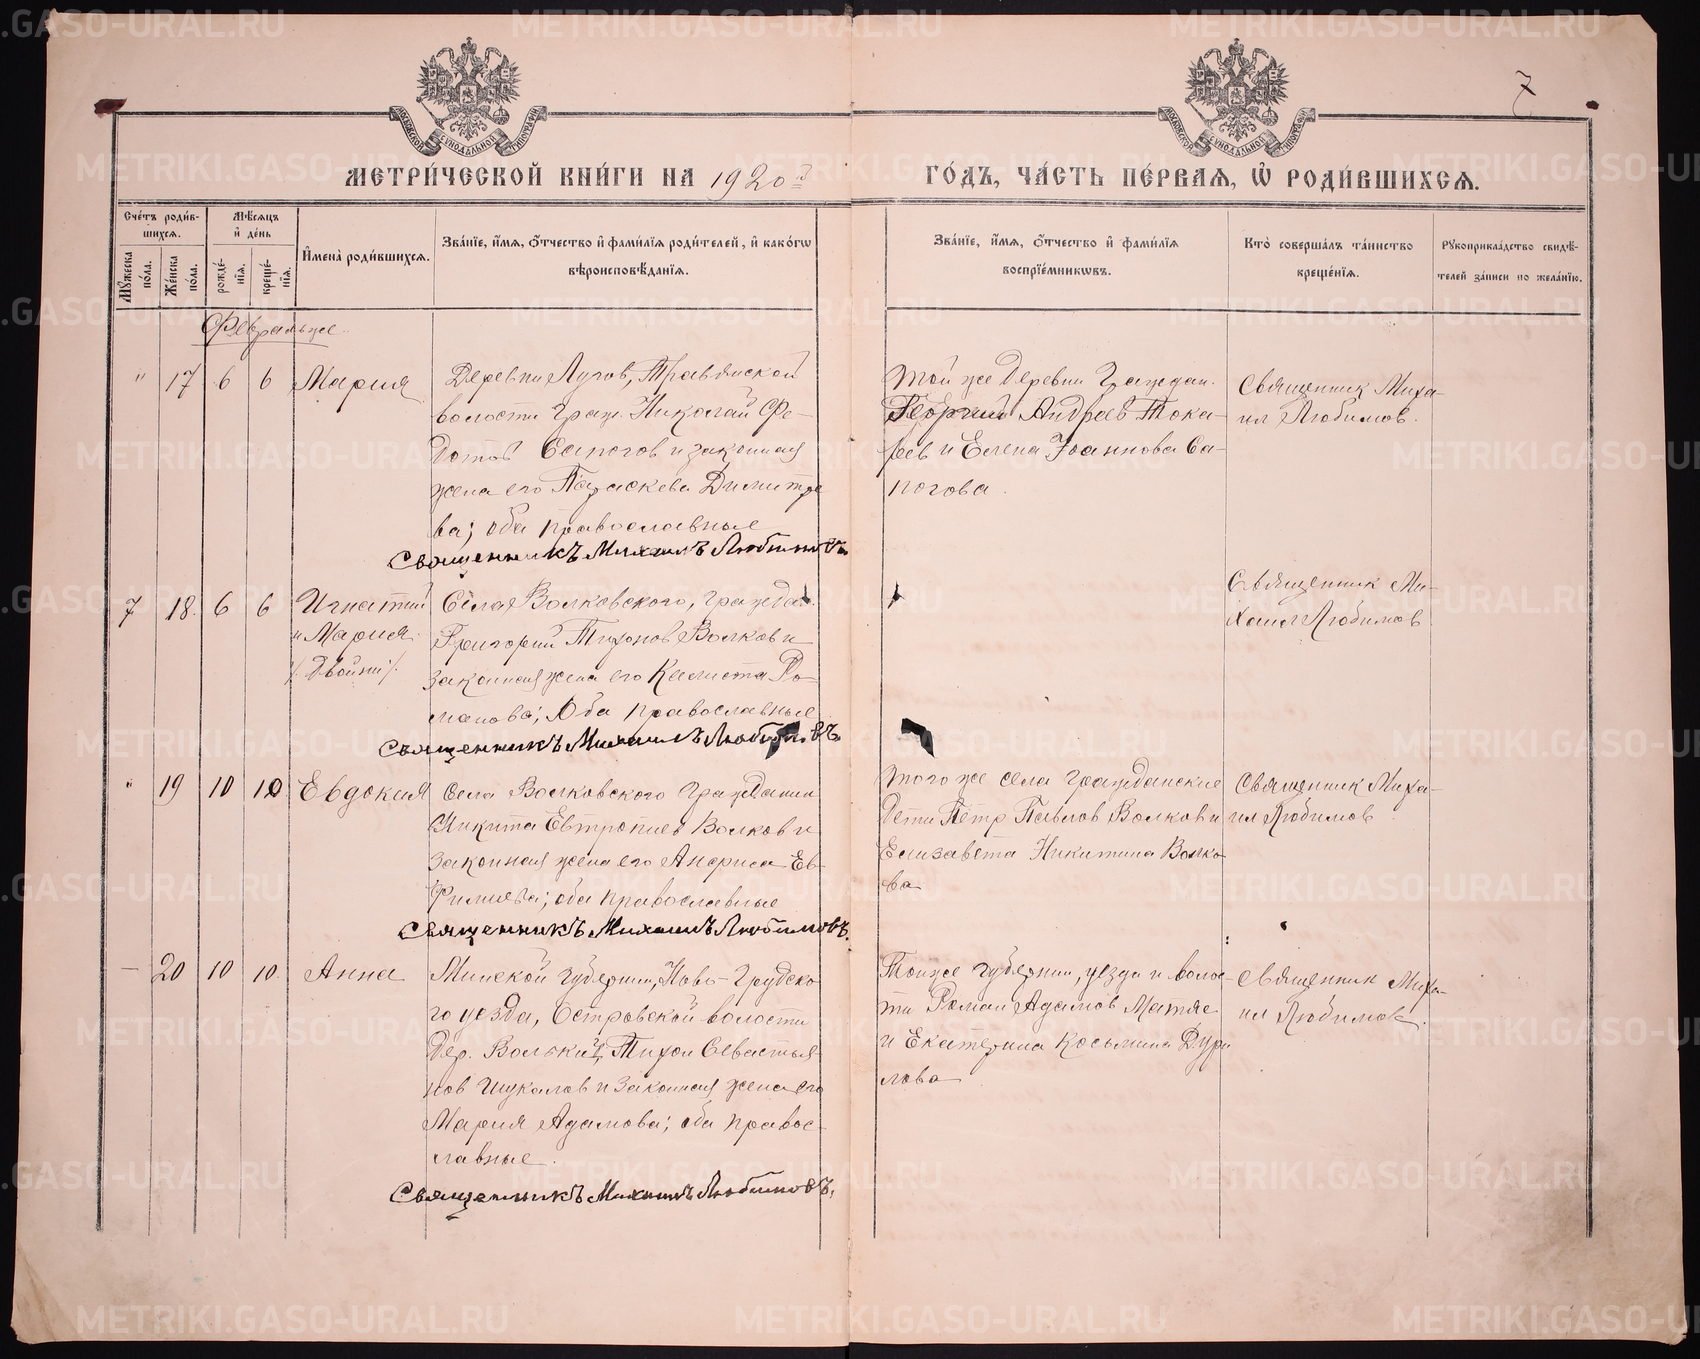 7
МЕТРИ́ЧЕСКОЙ КНИ́ГИ НА 1920 й ГО́ДЪ, ЧА́СТЬ ПЕ́РВАѦ, Ѡ҆ РОДИ́ВШИХСѦ.
Сче́тъ роди́в-
шихсѧ.
Мꙋ́жеска по́ла.
Же́нска по́ла.
Мѣ́сѧцъ
и҆ де́нь
рожде́-
нїѧ.
креще́-
нїѧ.
И҆мена̀ роди́вшихсѧ.
Зва́нїе, и҆́мѧ, ѻ҆́тчество и҆ фами́лїѧ роди́телей, и҆ како́гѡ
вѣроисповѣ́данїѧ.
Зва́нїе, и҆́мѧ, ѻ҆́тчество и҆ фами́лїѧ
воспрїе́мникѡвъ.
Кто̀ соверша́лъ та́инство
креще́нїѧ.
Рꙋкоприкла́дство свидѣ́-
телей за́писи по жела́нїю.
Февраль же
" 17 6 6 Мария
Деревни Лугов, Травянской
волости граж. Николай Фе-
дотов Сапогов и законная
жена его Параскева Димитрие
ва; оба православные
Священникъ Михаилъ Любимовъ
Той же деревни граждан.
Георгий Андреев Тока-
рев и Елена Иоаннова Са-
погова.
Священник Миха-
ил Любимов.
7 18. 6 6 Игнатий
и Мария
/. Двойни /.
Села Волковского, граждан.
Григорий Тихонов Волков и
законная жена его Ро-
манова; Оба православные
Священникъ Михаилъ Любимовъ
Священник Ми-
хаил Любимов
" 19 10 10 Евдокия
Села Волковского гражданин
Никита Евтропиев Волков и
законная жена его Анфиса Ев-
фимиева; оба православные
Священникъ Михаилъ Любимовъ.
того же села гражданские
дети Петр Павлов Волков и
Елизавета Никитина Волко-
ва
Священник Миха-
ил Любимов
— 20 10 10. Анна
Минской губернии, Ново-Грудско
го уезда, Островской волости
дер. Тихон Севастья-
нов Шукалов и законная жена его
Мария Адамова; оба правос-
лавные.
Священникъ Михаилъ Любимовъ.
Той же губернии, уезда и волос-
ти Роман Адамов
и Екатерина Косьмина
лова
Священник Миха-
ил Любимов.
METRIKI.GASO-URAL.RU